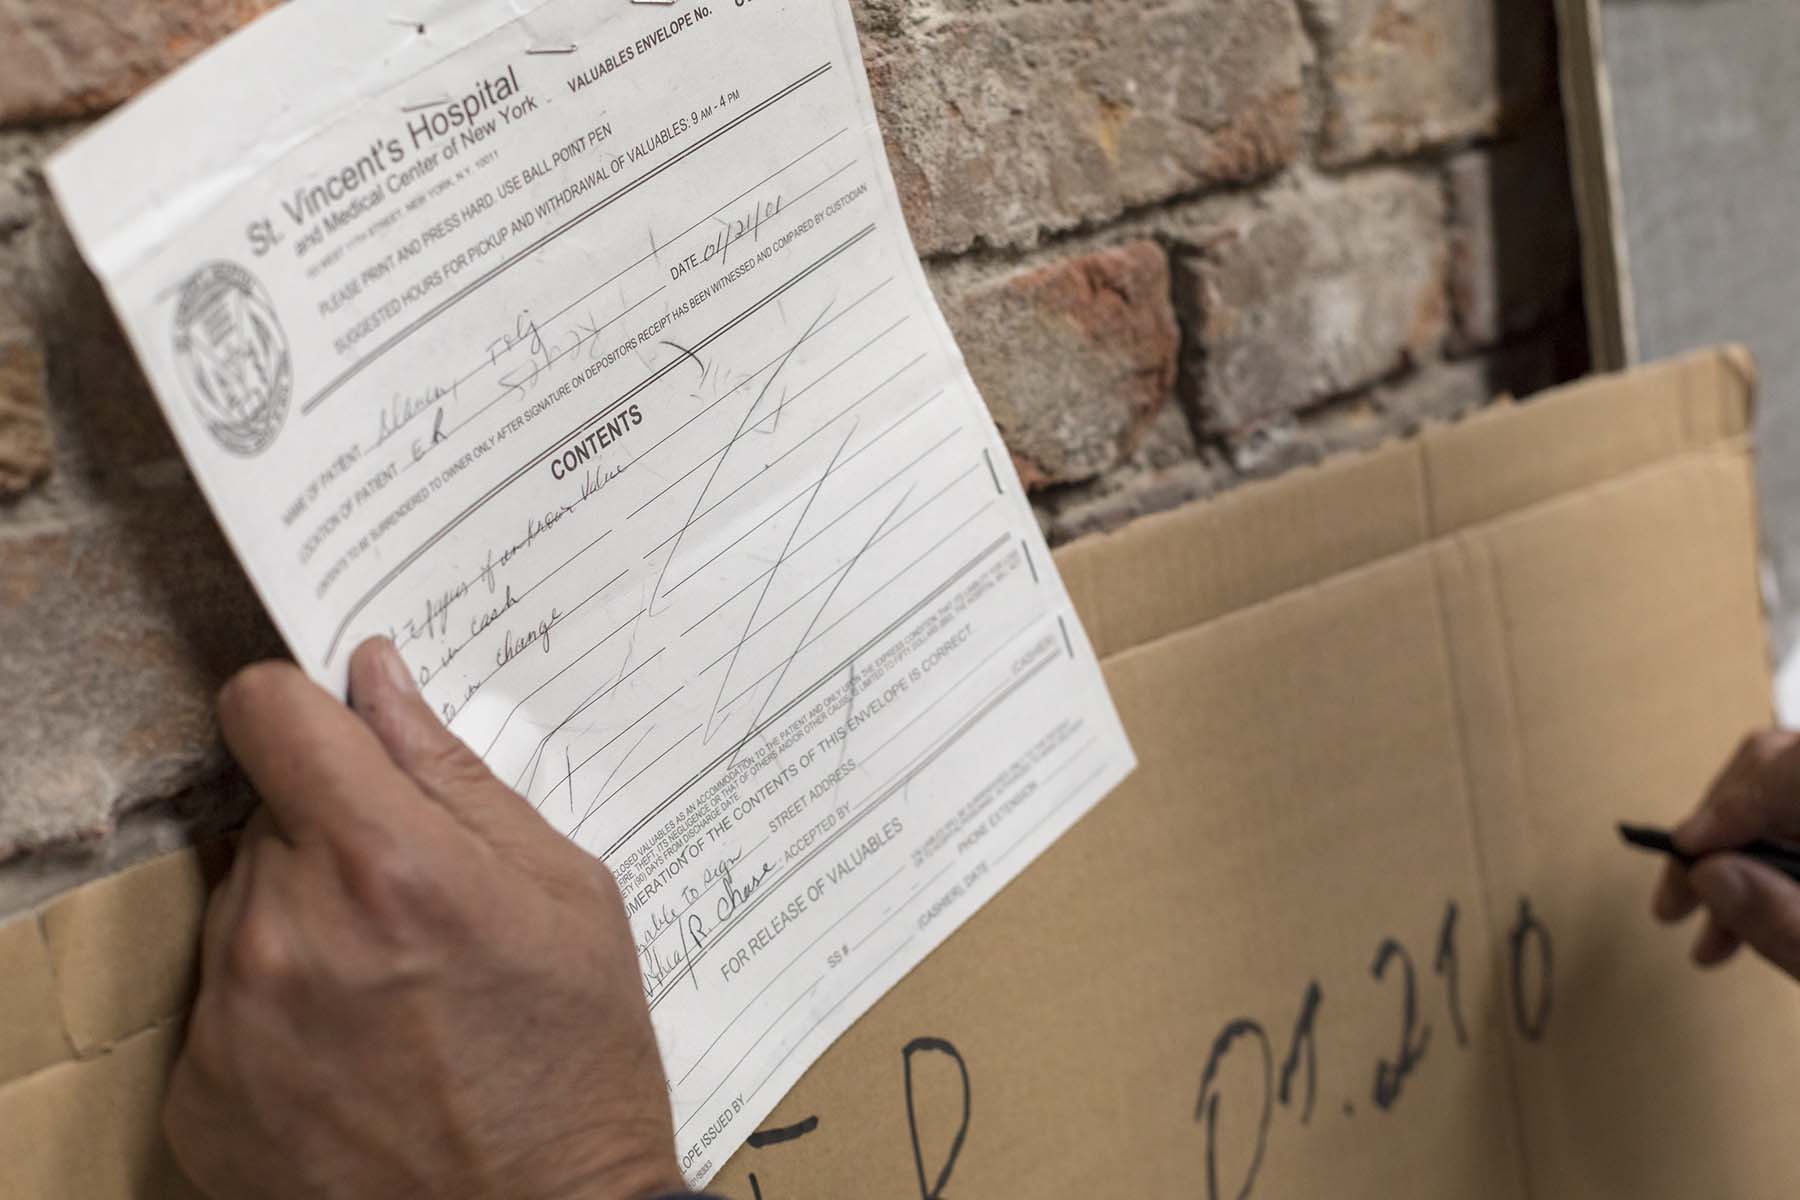 St. Vincent's Hospital
and Medical Center of New York
WEST 11TH STREET, NEW YORK, N.Y. 10011
VALUABLES ENVELOPE No.
PLEASE PRINT AND PRESS HARD. USE BALL POINT PEN
SUGGESTED HOURS FOR PICKUP AND WITHDRAWAL OF VALUABLES: 9 AM - 4 PM
NAME OF PATIENT
LOCATION OF PATIENT ER DATE 01/21/01
CONTENTS TO BE SURRENDERED TO OWNER ONLY AFTER SIGNATURE ON DEPOSITORS RECEIPT HAS BEEN WITNESSED AND COMPARED BY CUSTODIAN
CONTENTS
of unknown value
in cash
in change
CLOSED VALUABLES AS AN ACCOMMODATION TO THE PATIENT AND ONLY UPON THE EXPRESS CONDITION THAT ITS LIABILITY FOR
FIRE, THEFT, ITS NEGLIGENCE OR THAT OF OTHERS AND/OR OTHER CAUSE IS LIMITED TO FIFTY DOLLARS
(90) DAYS FROM DISCHARGE DATE.
UMERATION OF THE CONTENTS OF THIS ENVELOPE IS CORRECT
to sign STREET ADDRESS
R. Chase ACCEPTED BY (CASHIER)
FOR RELEASE OF VALUABLES
SS # PHONE EXTENSION
(CASHIER) DATE
LOPE ISSUED BY
R 01.21 0